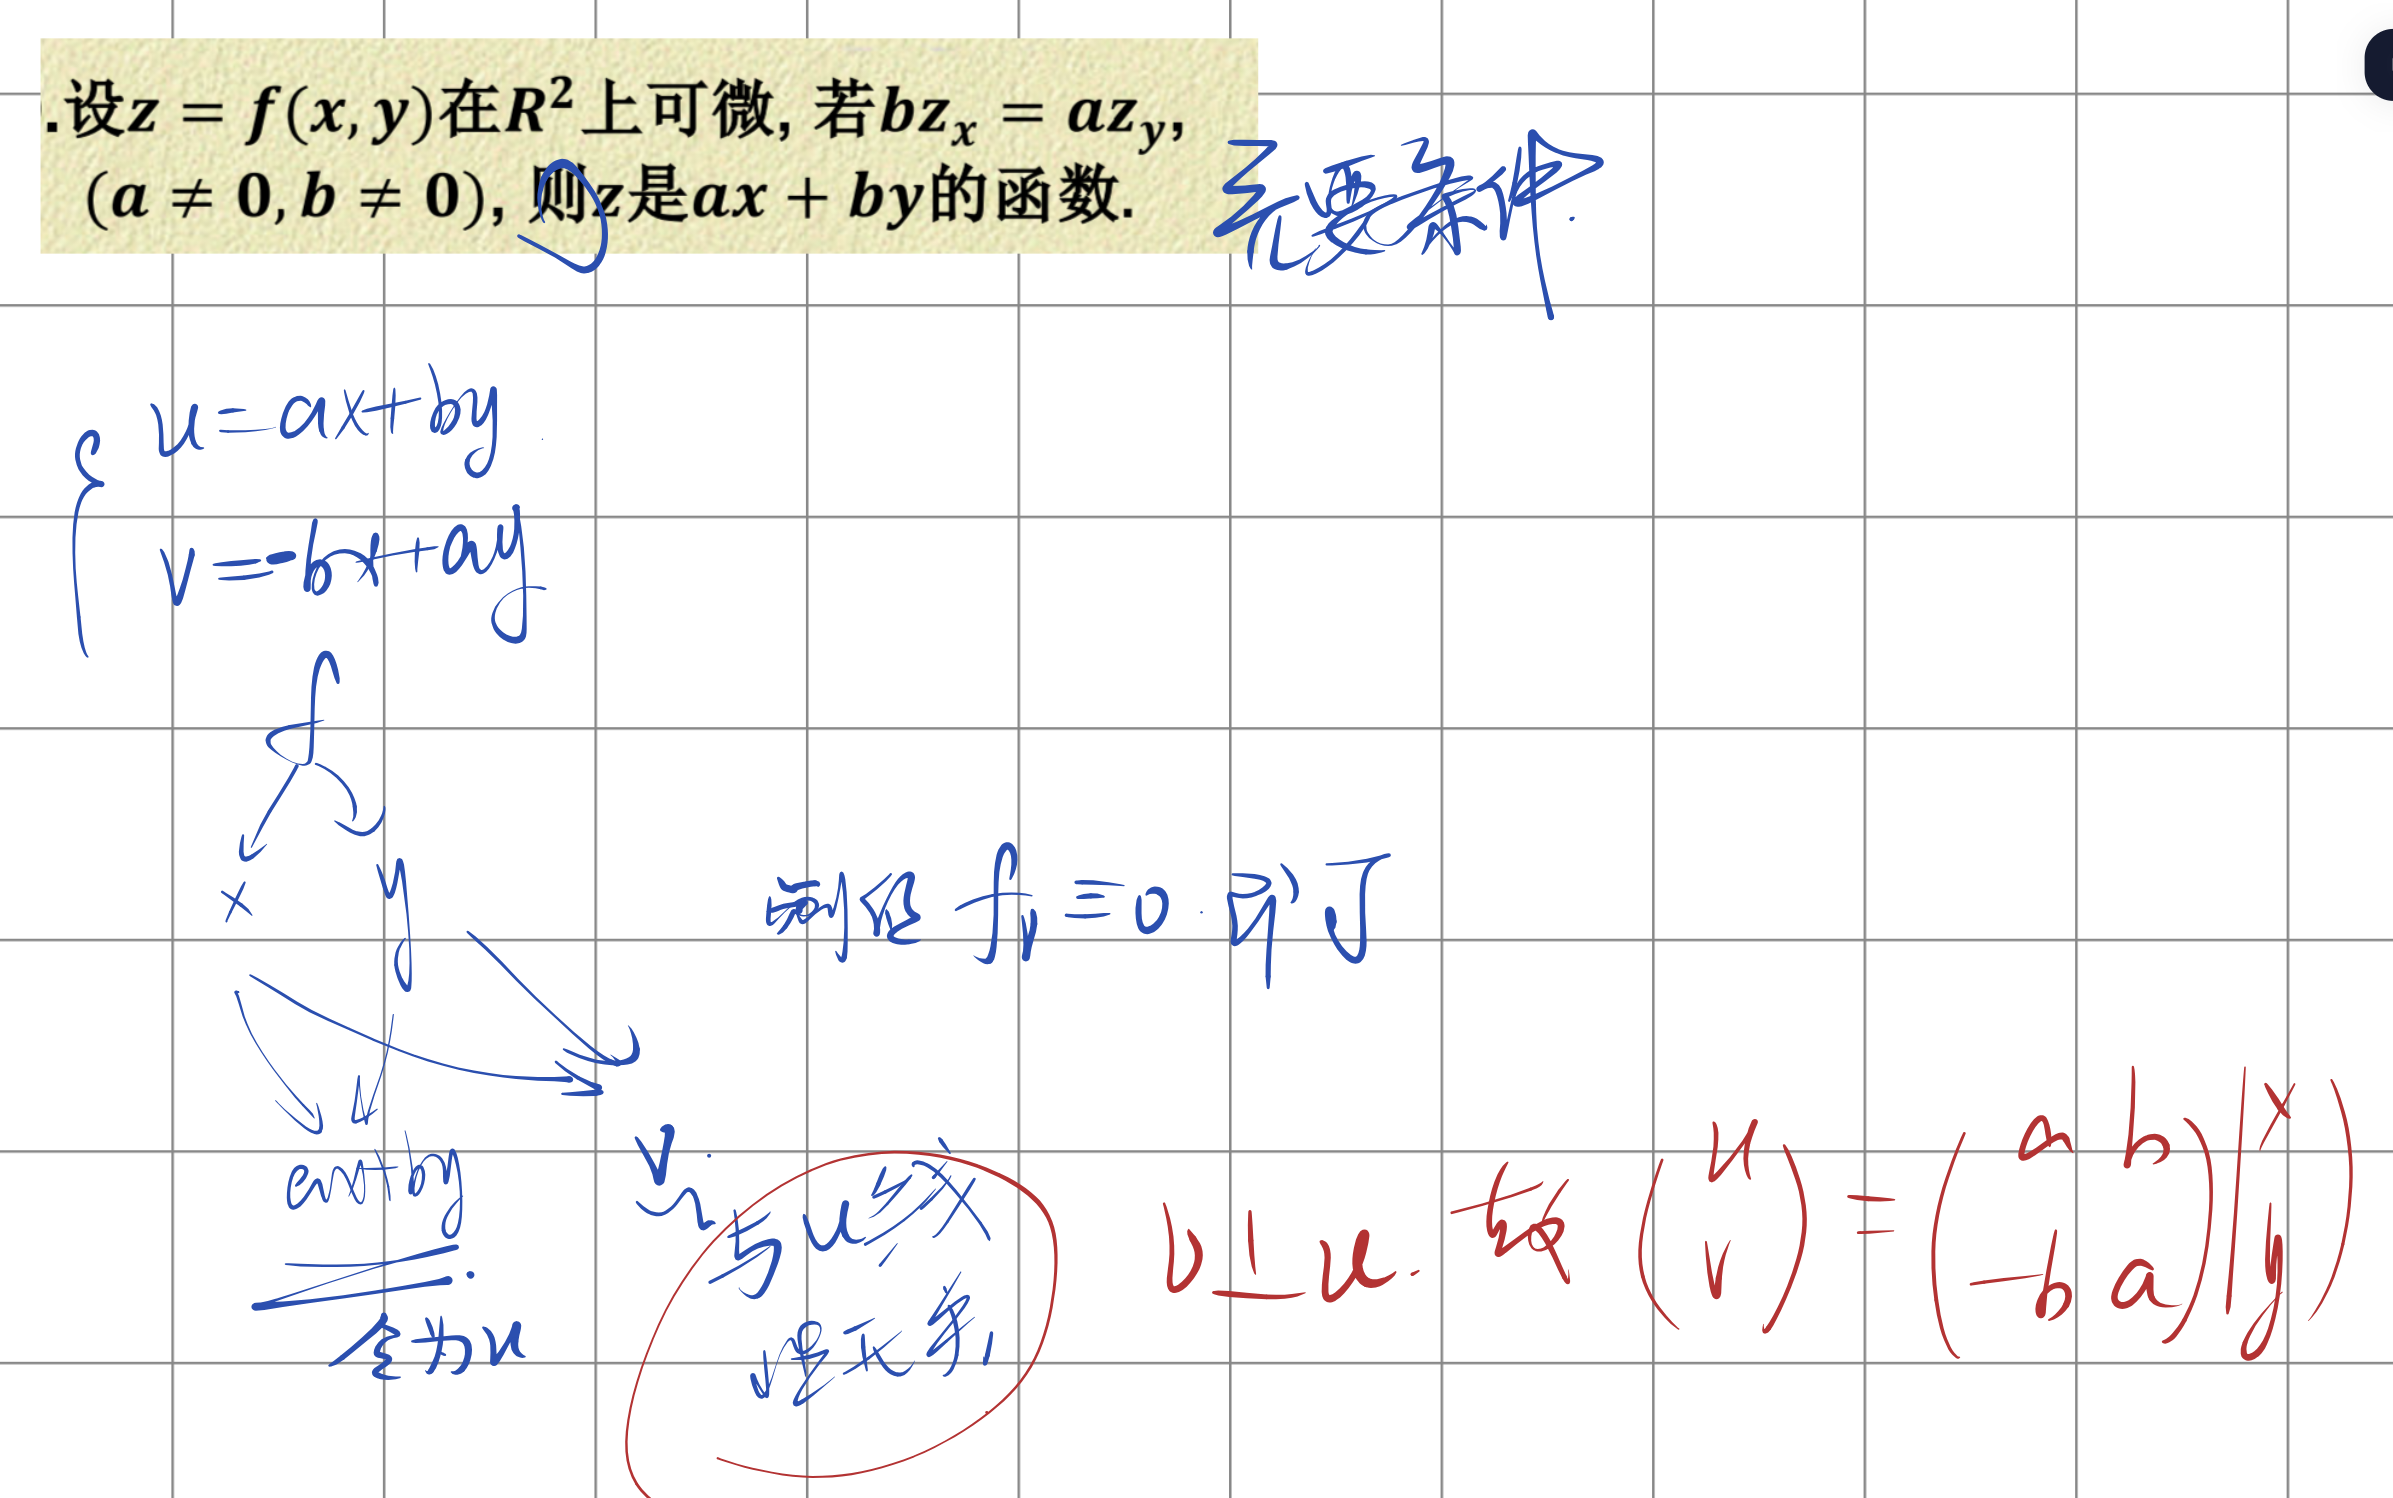 .设z = f(x, y)在R²上可微, 若bz_x = az_y,
(a ≠ 0, b ≠ 0), 则z是ax + by的函数.
充要条件.
u = ax + by
v = -bx + ay
f
x y
ax+by v.
令为u
与u线性无关,
f_v ≡ 0. 即可
v⊥u. 故 (u v) = (a b -b a)(x y)